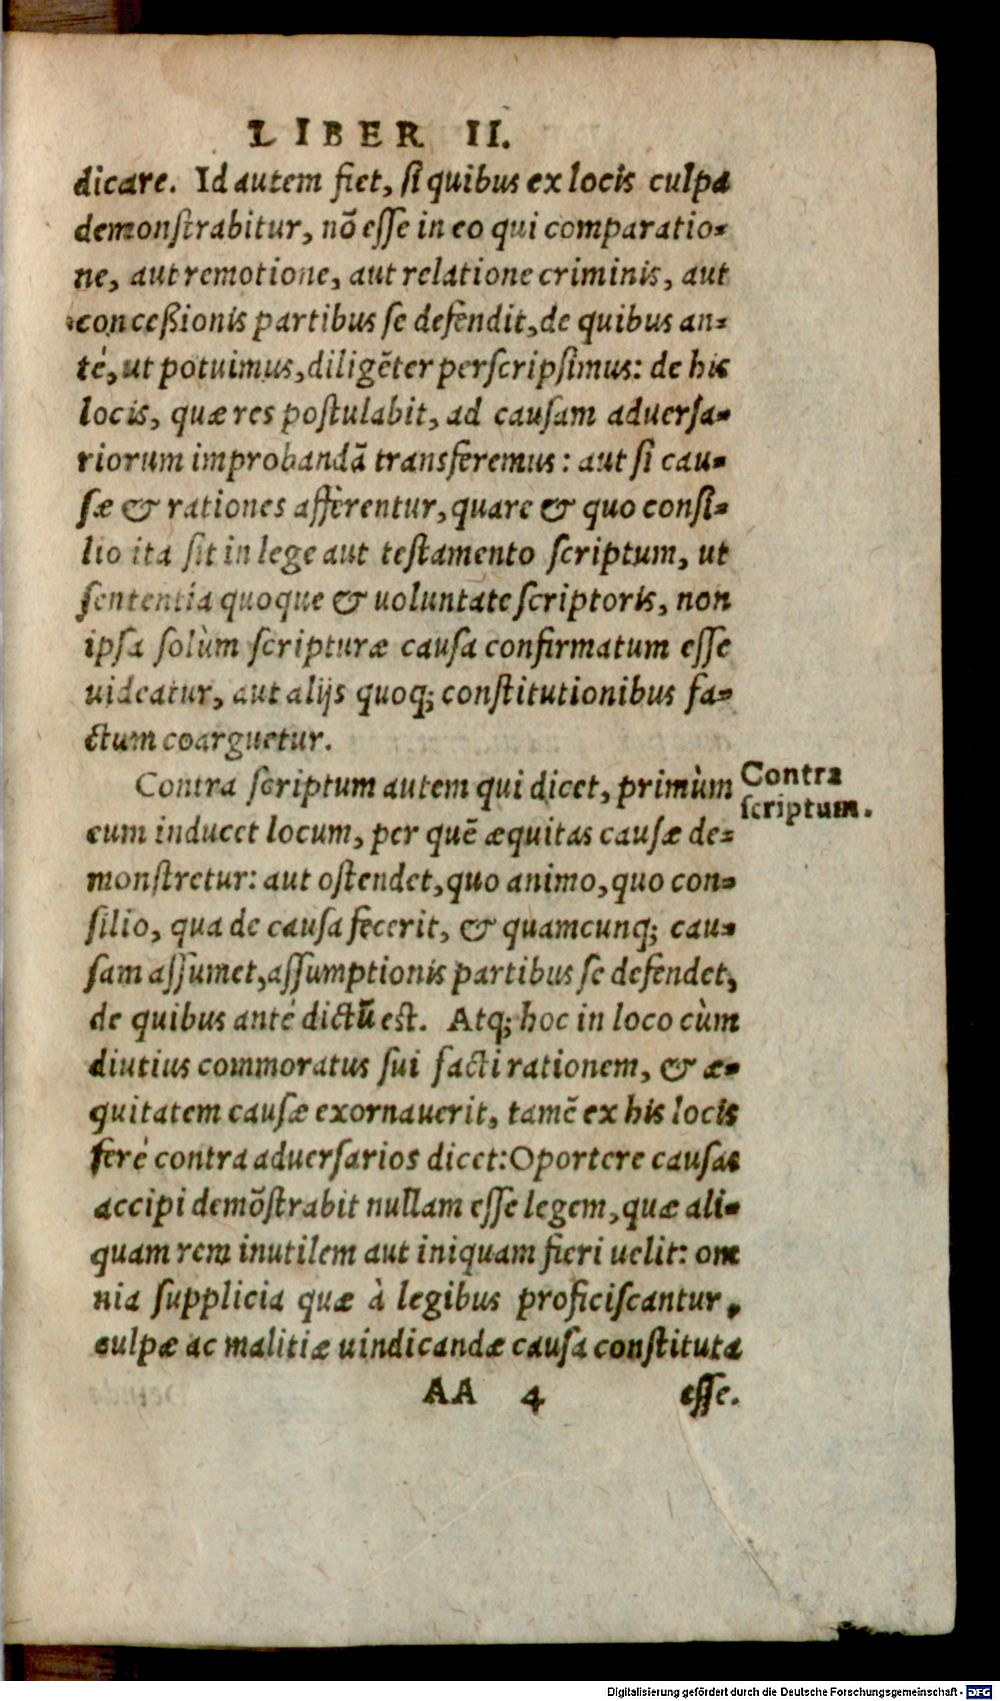 LIBER II.
dicare. Id autem fiet, ſi quibus ex locis culpa
demonſtrabitur, nõ eſſe in eo qui comparatio-
ne, aut remotione, aut relatione criminis, aut
conceßionis partibus ſe defendit, de quibus an-
té, ut potuimus, diligẽter perſcripſimus: de his
locis, quæ res poſtulabit, ad cauſam aduerſa-
riorum improbandã transferemus: aut ſi cau-
ſæ & rationes afferentur, quare & quo conſi-
lio ita ſit in lege aut teſtamento ſcriptum, ut
ſententia quoque & uoluntate ſcriptoris, non
ipſa ſolùm ſcripturæ cauſa confirmatum eſſe
uideatur, aut alijs quoq; conſtitutionibus fa-
ctum coarguetur.
Contra ſcriptum autem qui dicet, primùm
Contra
ſcriptum.
eum inducet locum, per quẽ æquitas cauſæ de-
monſtretur: aut oſtendet, quo animo, quo con-
ſilio, qua de cauſa fecerit, & quamcunq; cau-
ſam aſſumet, aſſumptionis partibus ſe defendet,
de quibus anté dictũ est. Atq; hoc in loco cùm
diutius commoratus ſui facti rationem, & æ-
quitatem cauſæ exornauerit, tamẽ ex his locis
feré contra aduerſarios dicet: Oportere cauſas
accipi demõſtrabit nullam eſſe legem, quæ ali-
quam rem inutilem aut iniquam fieri uelit: om
nia ſupplicia quæ à legibus proficiſcantur,
culpæ ac malitiæ uindicandæ cauſa conſtituta
AA 4 eſſe.
Digitalisierung gefördert durch die Deutsche Forschungsgemeinschaft - DFG